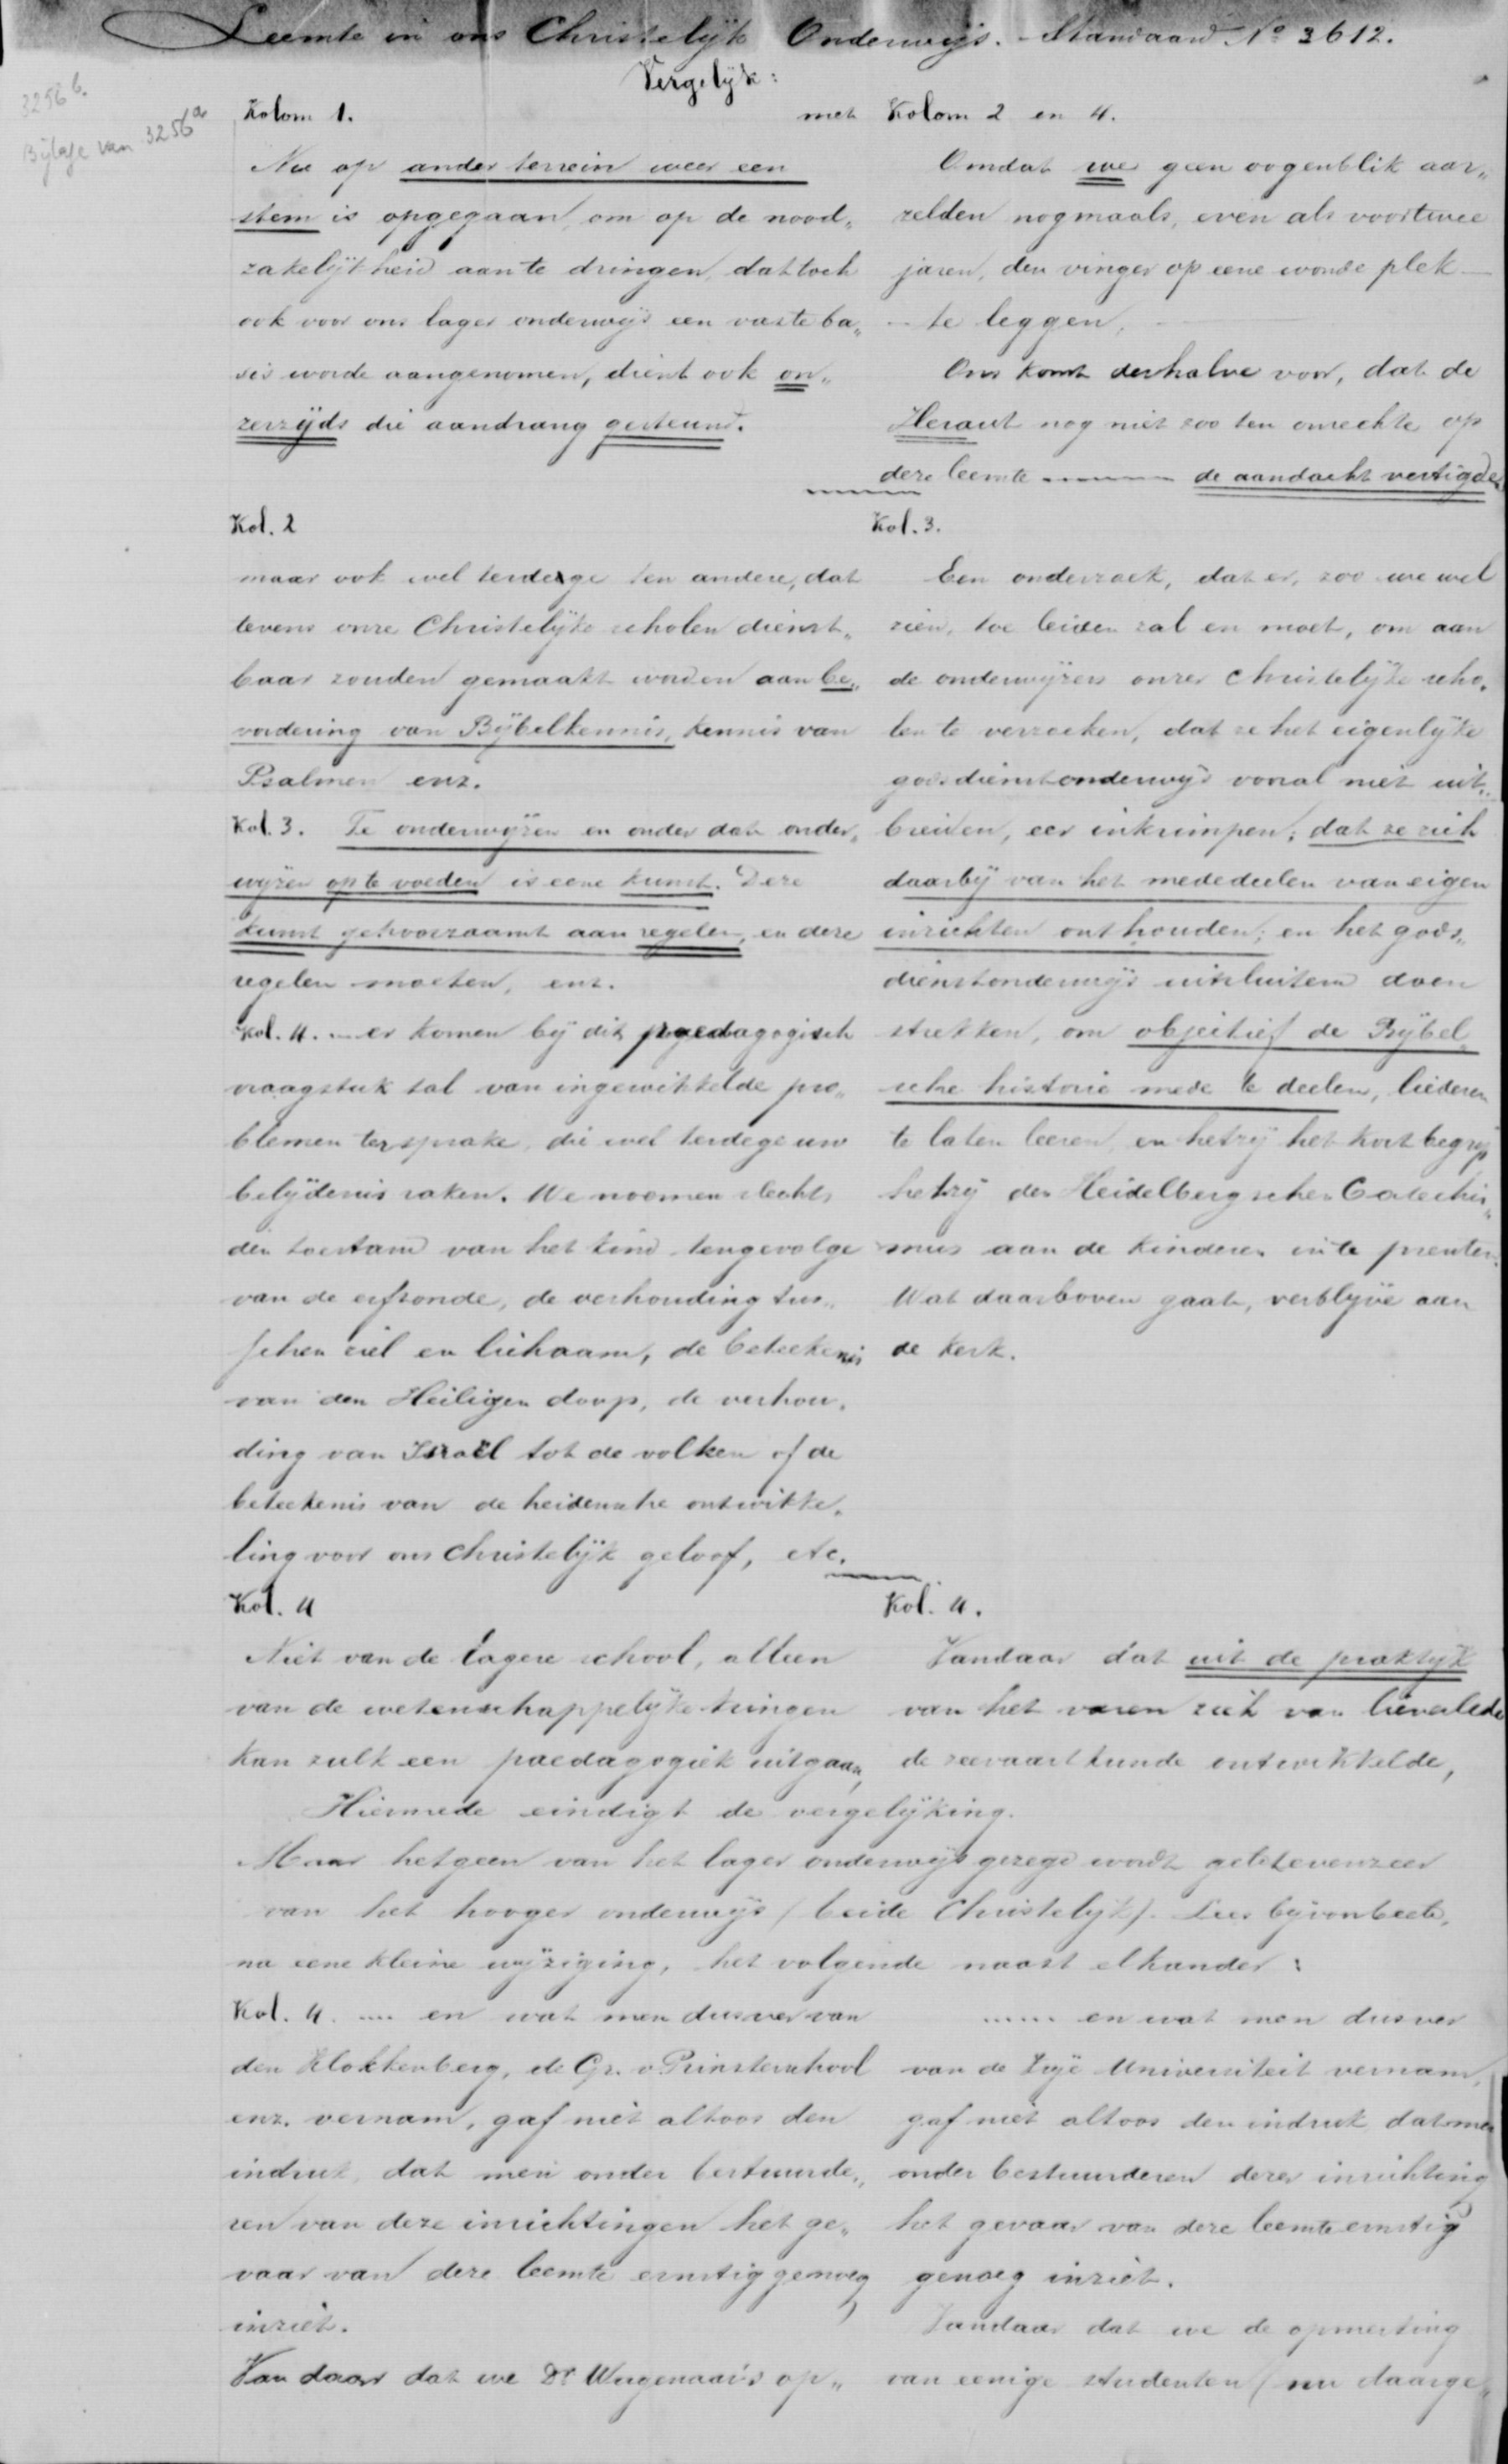 Leemte in ons Christelijk Onderwijs. - Standaard No 3612.
Vergelijk:
3256 b.
Bijlage van 3256 a
Kolom 1.
Nu op ander terrein weer een
stem is opgegaan, om op de nood„
zakelijkheid aan te dringen, dat toch
ook voor ons lager onderwijs een vaste ba„
sis worde aangenomen, dient ook on„
zerzijds die aandrang gesteund.
met Kolom 2 en 4.
Omdat we geen oogenblik aar„
zelden nogmaals, even als voor twee
jaren, den vinger op eene wonde plek —
- te leggen, —
Ons komt derhalve voor, dat de
Heraut nog niet zoo ten onrechte op
deze leemte ........ de aandacht vestigde.
Kol. 2
maar ook wel terdege ten andere, dat
tevens onze Christelijke scholen dienst„
baar zouden gemaakt worden aan be„
vordering van Bijbelkennis, kennis van
Psalmen enz.
Kol. 3. Te onderwijzen en onder dat onder„
wijzen op te voeden is eene kunst. Deze
kunst gehoorzaamt aan regelen, en deze
regelen moeten, enz.
Kol. 4. ... er komen bij dit paedagogisch
vraagstuk tal van ingewikkelde pro„
blemen ter sprake, die wel terdege uw
belijdenis raken. We noemen slechts
den toestand van het kind tengevolge
van de erfzonde, de verhouding tus„
schen ziel en lichaam, de beteekenis
van den Heiligen doop, de verhou„
ding van Israël tot de volken of de
beteekenis van de heidensche ontwikke„
ling voor ons Christelijk geloof, etc.
Kol. 3.
Een onderzoek, dat er, zoo we wel
zien, toe leiden zal en moet, om aan
de onderwijzers onzer Christelijke scho„
len te verzoeken, dat ze het eigenlijke
godsdienstonderwijs vooral niet uit„
breiden, eer inkrimpen; dat ze zich
daarbij van het mededeelen van eigen
inzichten onthouden; en het gods„
dienstonderwijs uitsluitend doen
strekken, om objectief de Bijbel„
sche historie mede te deelen, liederen
te laten leeren, en hetzij het Kort begrip
hetzij den Heidelbergschen Catechis„
mus aan de kinderen in te prenten.
Wat daarboven gaat, verblijve aan
de kerk.
Kol. 4
Niet van de lagere school, alleen
van de wetenschappelijke kringen
kan zulk een paedagogiek uitgaan,
Kol. 4.
Vandaar dat uit de praktijk
van het varen zich van lieverlede
de zeevaartkunde ontwikkelde,
Hiermede eindigt de vergelijking.
Maar hetgeen van het lager onderwijs gezegd wordt geldt evenzeer
van het hooger onderwijs (beide Christelijk). Lees bijvoorbeeld,
na eene kleine wijziging, het volgende naast elkander:
Kol. 4. .... en wat men dusver van
den Klokkenberg, de Gr. v. Prinsterschool
enz. vernam, gaf niet altoos den
indruk, dat men onder bestuurde„
ren van deze inrichtingen het ge„
vaar van deze leemte ernstig genoeg
inziet.
Van daar dat we Dr Wagenaar's op„
...... en wat men dusver
van de Vrije Universiteit vernam,
gaf niet altoos den indruk dat men
onder bestuurderen dezer inrichting
het gevaar van deze leemte ernstig
genoeg inziet.
Vandaar dat we de opmerking
van eenige studenten (nu daarge„